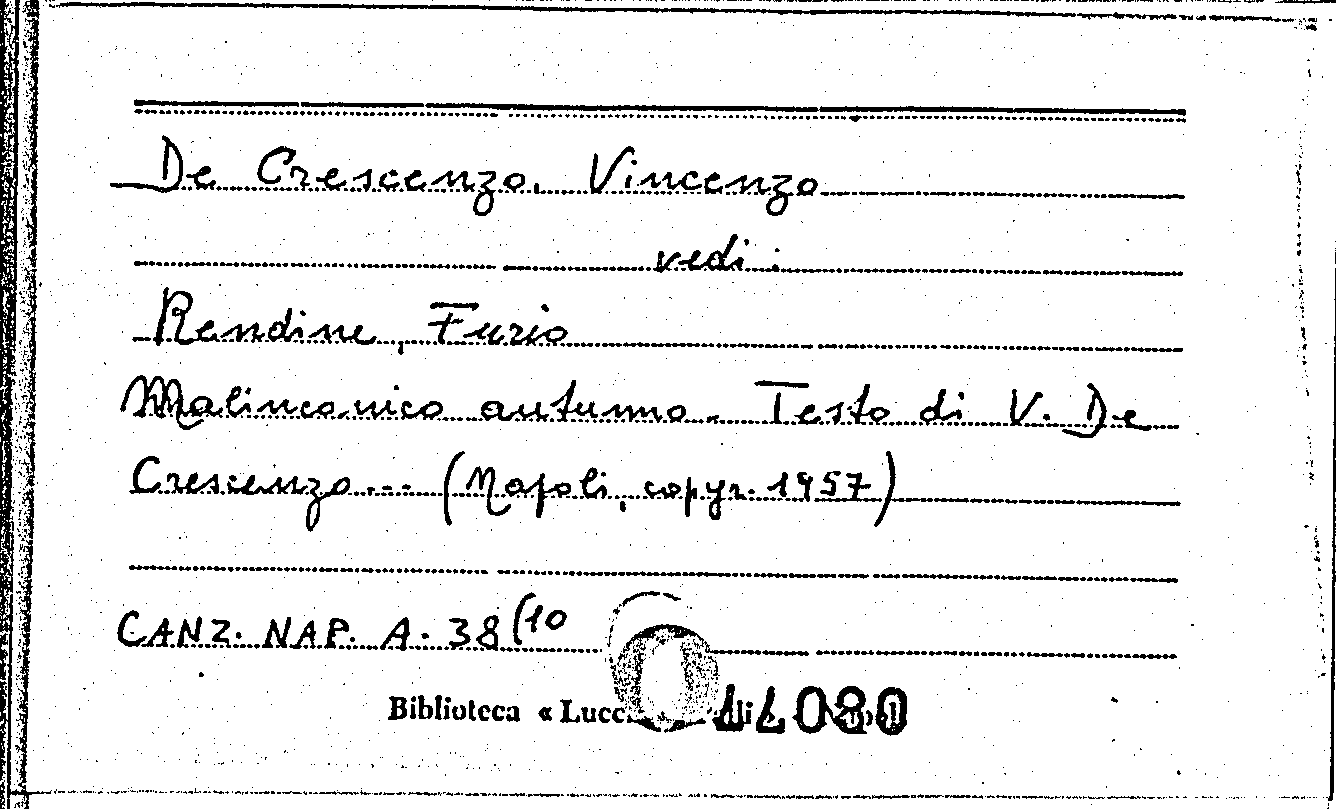 De Crescenzo, Vincenzo
vedi:
Rendine, Furio
Malinconico autunno. Testo di V. De
Crescenzo... (Napoli, copyr. 1957)
CANZ. NAP. A. 38(10
Biblioteca «